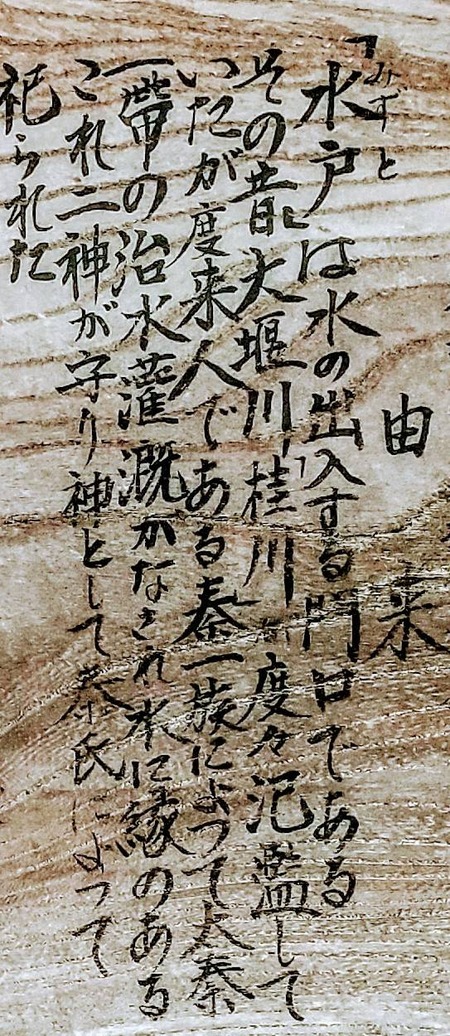 由来
みずと
「水戸」は水の出入する門口である
その昔大堰川桂川が度々氾濫して
いたが度来人である秦一族によって太秦
一帯の治水灌漑がなされ水に縁のある
これ二神が守り神として秦氏によって
祀られた